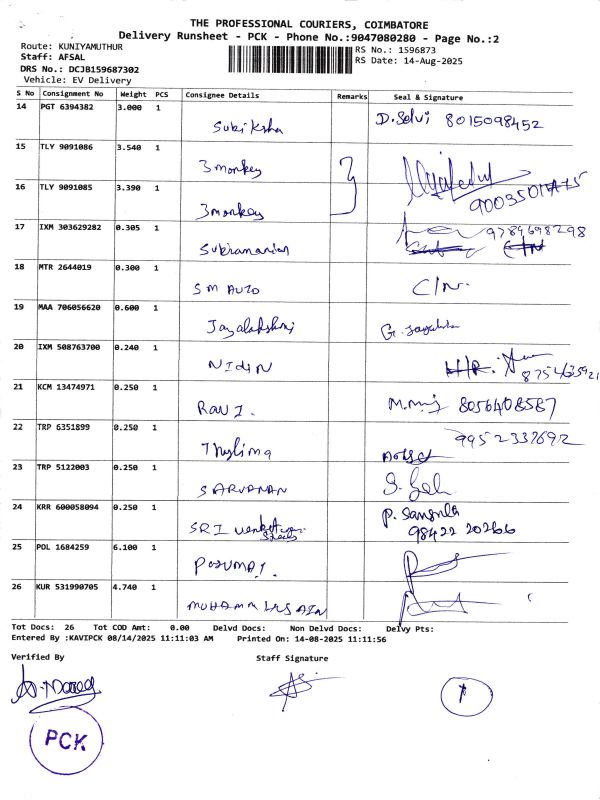 THE PROFESSIONAL COURIERS, COIMBATORE
Delivery Runsheet - PCK - Phone No.:9047080280 - Page No.:2
Route: KUNIYAMUTHUR
RS No.: 1596873
Staff: AFSAL
RS Date: 14-Aug-2025
DRS No.: DCJB159687302
Vehicle: EV Delivery
S No Consignment No Weight PCS Consignee Details Remarks Seal & Signature
14 PGT 6394382 3.000 1 Subiksha D. Selvi 8015098452
15 TLY 9091086 3.540 1 3monkey
16 TLY 9091085 3.390 1 3monkey
17 IXM 303629282 0.305 1 Subramanian 9789698298
18 MTR 2644019 0.300 1 SM AUTO C/N.
19 MAA 706056620 0.600 1 Jayalakshmi G. Jayalakshmi
20 IXM 508763700 0.240 1 NIdIN
21 KCM 13474971 0.250 1 RAVI. 8056408587
22 TRP 6351899 0.250 1 9952337692
23 TRP 5122003 0.250 1 SARVANAN
24 KRR 600058094 0.250 1 SRI P. 98422 20266
25 POL 1684259 6.100 1
26 KUR 531990705 4.740 1
Tot Docs: 26 Tot COD Amt: 0.00 Delvd Docs: Non Delvd Docs: Delvy Pts:
Entered By :KAVIPCK 08/14/2025 11:11:03 AM Printed On: 14-08-2025 11:11:56
Verified By Staff Signature
1
PCK